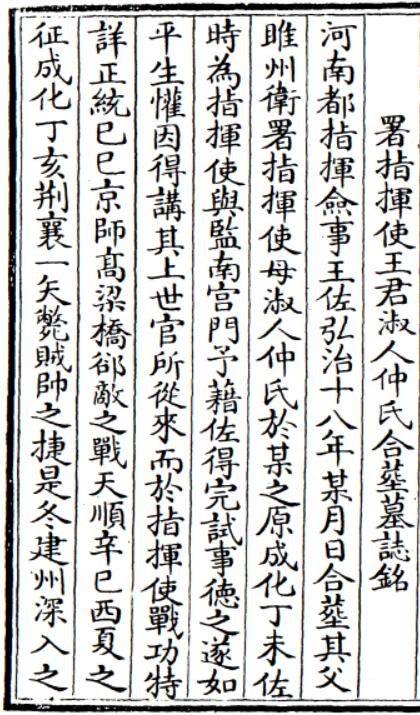 署指揮使王君淑人仲氏合塟墓誌銘
河南都指揮僉事王佐弘治十八年某月日合塟其父
睢州衛署指揮使母淑人仲氏於某之原成化丁未佐
時為指揮使與監南宫門予藉佐得完試事徳之遂如
平生懽因得講其上世官所從來而於指揮使戰功特
詳正統巳巳京師髙梁橋郤敵之戰天順辛巳西夏之
征成化丁亥荆襄一矢斃賊帥之捷是冬建州深入之